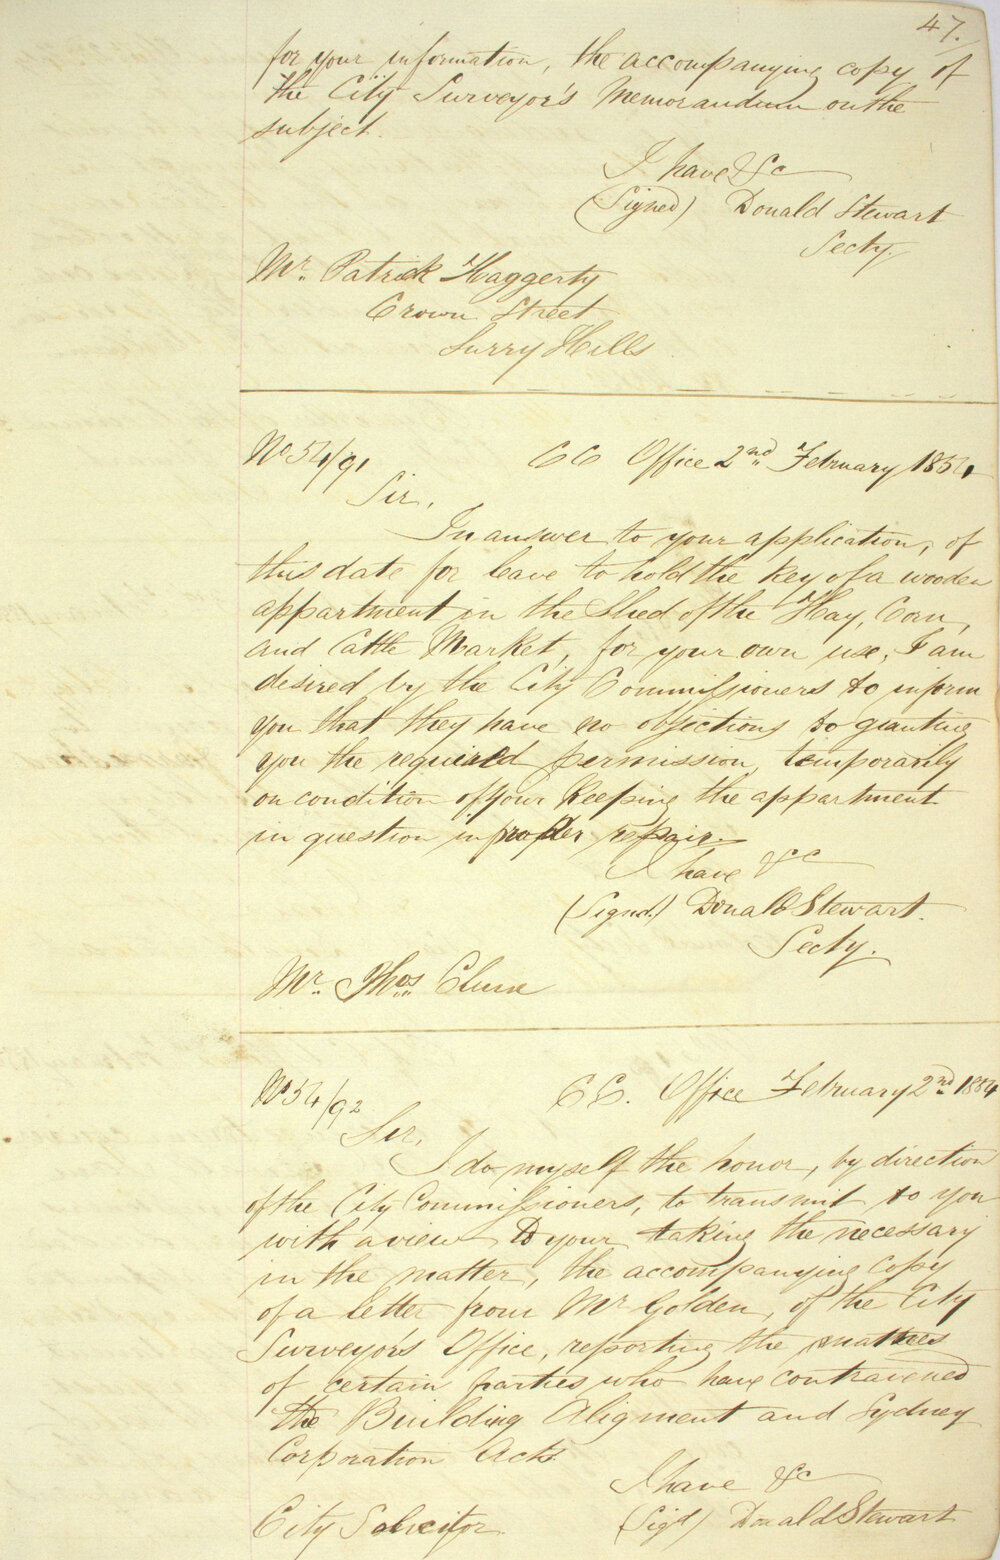 47.
for your information, the accompanying copy of
the City Surveyor's Memorandum on the
subject.
I have &c
(Signed) Donald Stewart
Secty.
Mr. Patrick Haggerty
Crown Street
Surry Hills
No 54/91
CC Office 2nd February 1854
Sir,
In answer to your application, of
this date for leave to hold the Key of a wooden
appartment in the Shed of the Hay, Corn,
and Cattle Market, for your own use, I am
desired by the City Commissioners to inform
you that they have no objections to granting
you the required permission, temporarily
on condition of your Keeping the appartment
in question in proper repair.
I have &c
(Signed) Donald Stewart.
Secty.
Mr. Thos Clune
No 54/92
CC. Office February 2nd 1854
Sir,
I do myself the honor, by direction
of the City Commissioners, to transmit to you
with a view to your taking the necessary
in the matter, the accompanying Copy
of a letter from Mr Golden, of the City
Surveyor's Office, reporting the
of certain parties who have contravened
the Building Aligment and Sydney
Corporation Acts.
I have &c
(Sigd) Donald Stewart
City Solicitor.